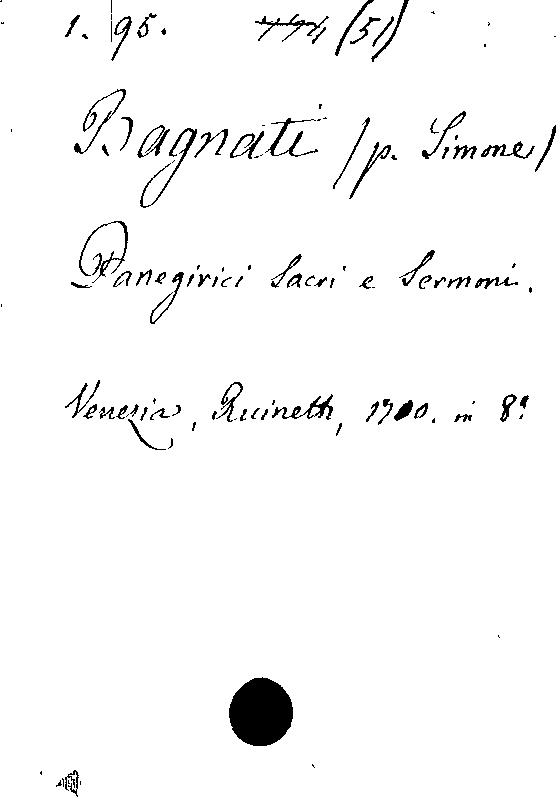 1. 95. (51)
Bagnati (p. Simone)
Panegirici Sacri e Sermoni.
Venezia, Ruinetti, 1700. in 8º